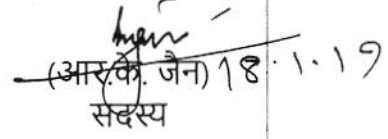 (आर.के. जैन) 18.1.19
सदस्य